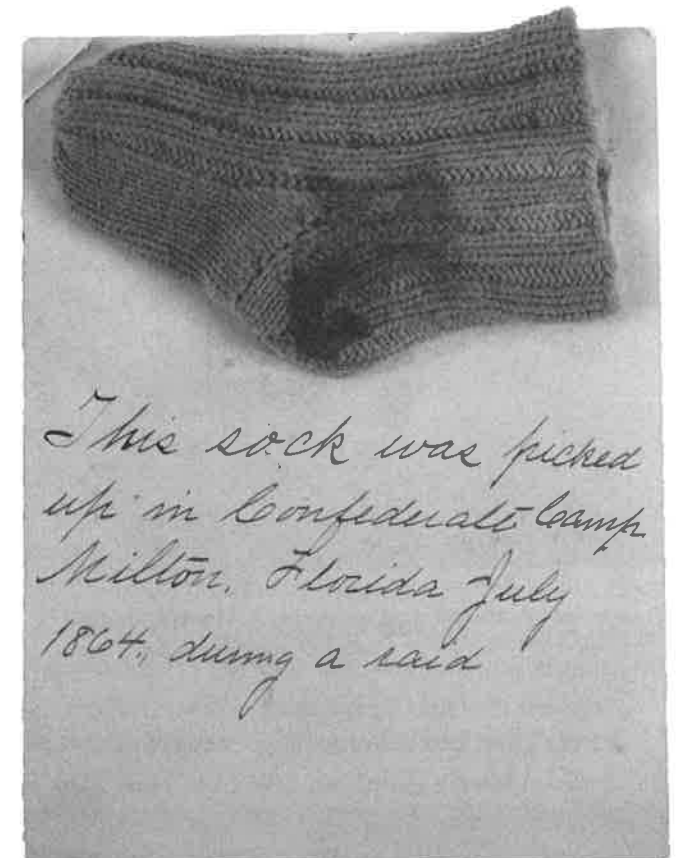 This sock was picked
up in Confederate Camp
Milton, Florida July
1864, during a raid